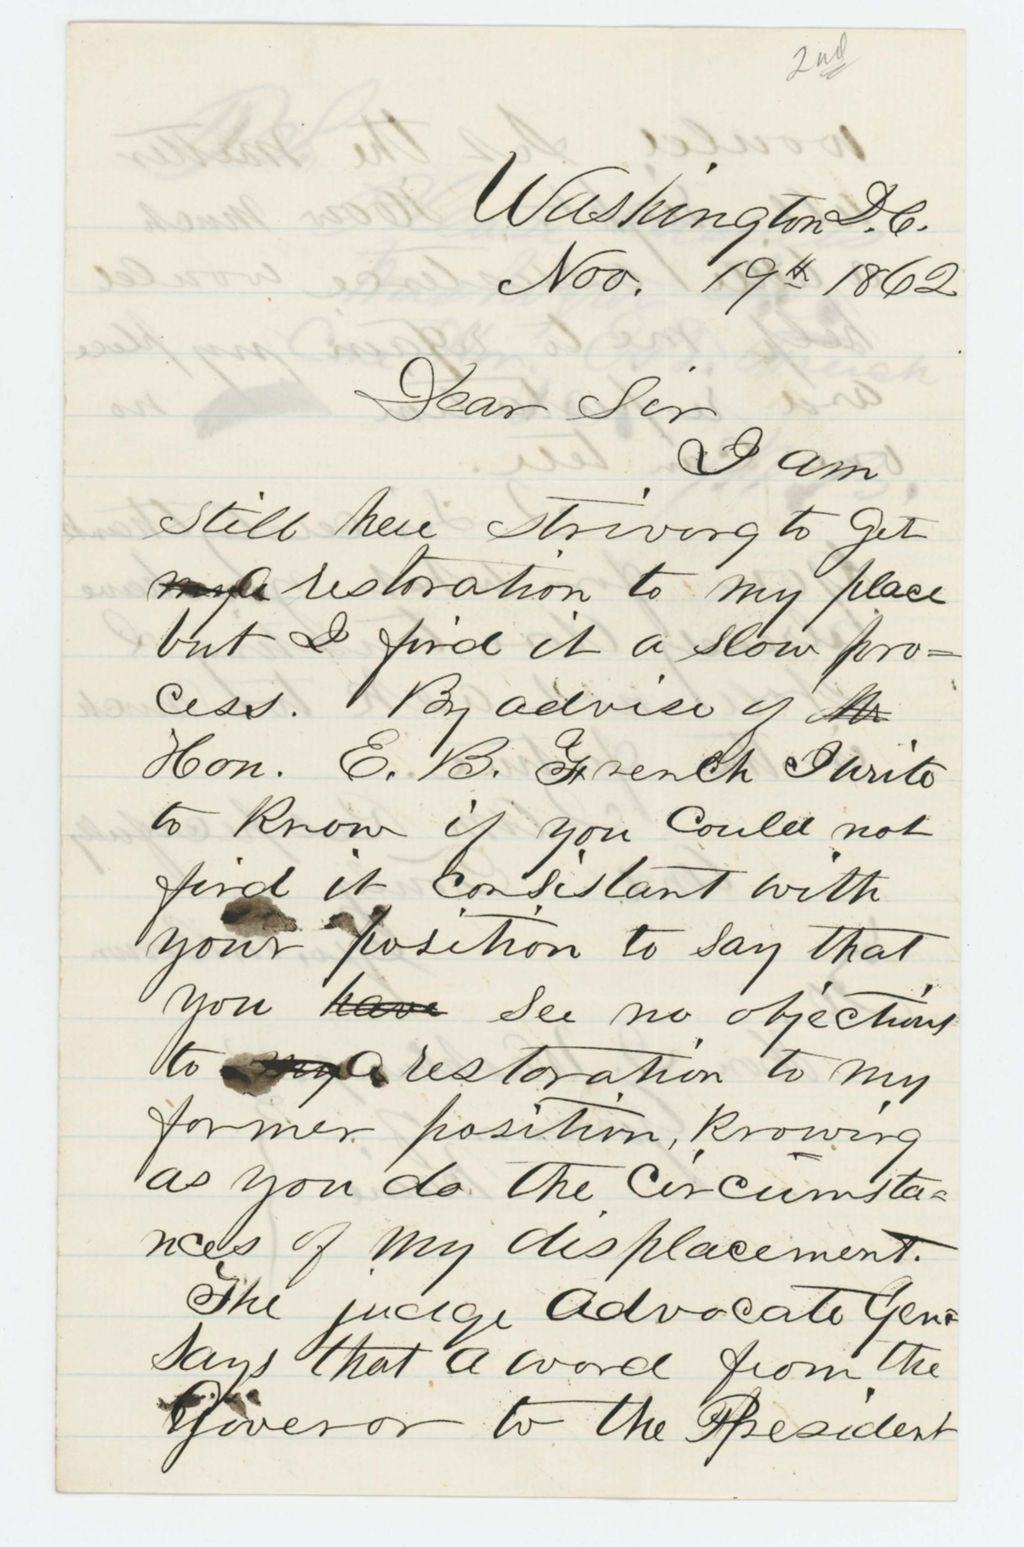 2nd
Washington D.C.
Nov. 19th 1862
Dear Sir
I am
still here striving to get
my a restoration to my place
but I find it a slow pro=
cess. By advise of Mr
Hon. E. B. French I write
to know if you could not
find it consistant with
your position to say that
you have see no objections
to my a restoration to my
former position, knowing
as you do the circumsta=
nces of my displacement.
The judge Advocate Gen=
says that a word from the
Goveror to the President